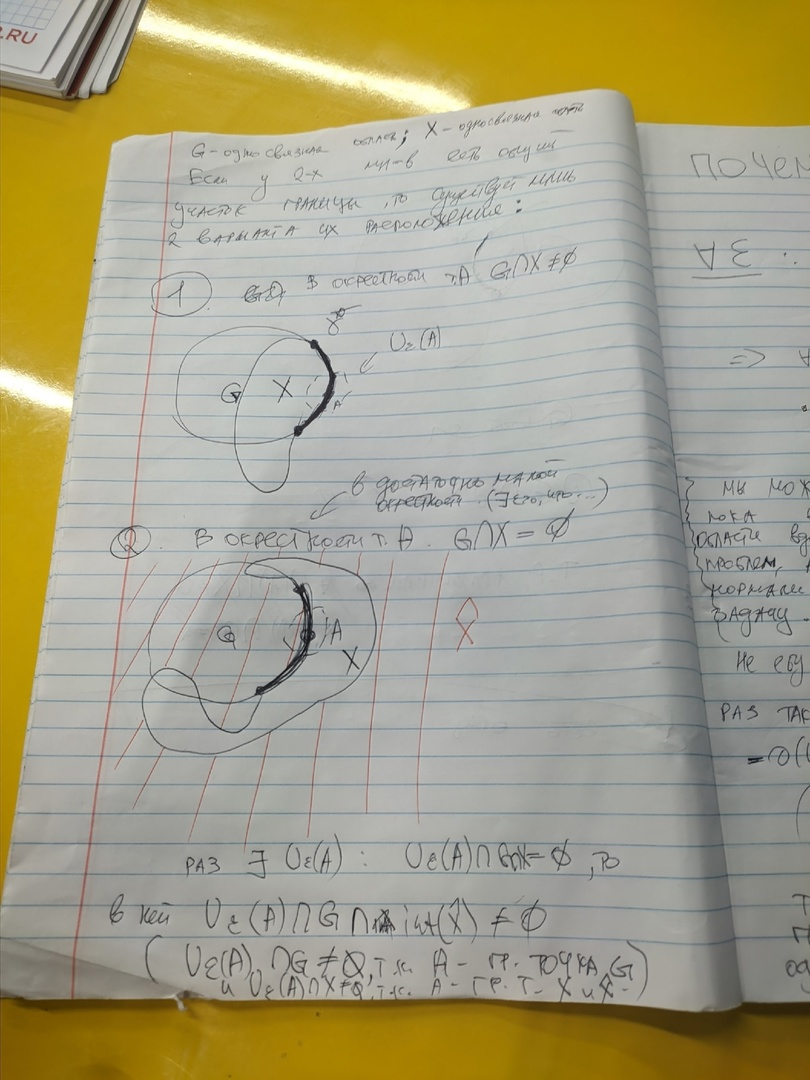 .RU
G - односвязная область; X - односвязная
Если у 2-х мн-в есть общий
участок границы, то существует лишь
2 варианта их расположения:
1 В окрестности т.A G∩X≠∅
Uε(A)
G X A
в достаточно малой
окрестности (∃ ε>0, что...)
2. В окрестности т. A. G∩X = ∅
G A X X̂
раз ∃ Uε(A): Uε(A)∩G∩X=∅, то
в ней Uε(A)∩G∩int(X̂) ≠ ∅
(Uε(A)∩G≠∅, т.к. A - гр. точка G)
и Uε(A)∩X̂≠∅, т.к. A - гр. т- X и X̂
ПОЧЕМ
ЗА
<=
мы мож
пока
области
проблем,
нормали
задачу.
Не
раз так